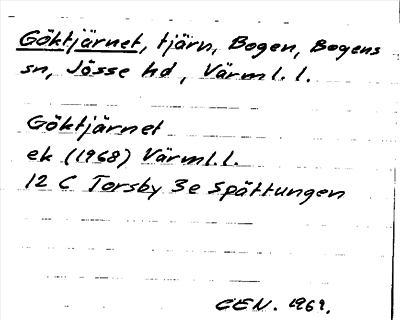 Göktjärnet, tjärn, Bogen, Bogens
sn, Jösse hd, Värml. l.
Göktjärnet
ek (1968) Värml.l.
12 C Torsby 3e Spättungen
CEN. 1969.